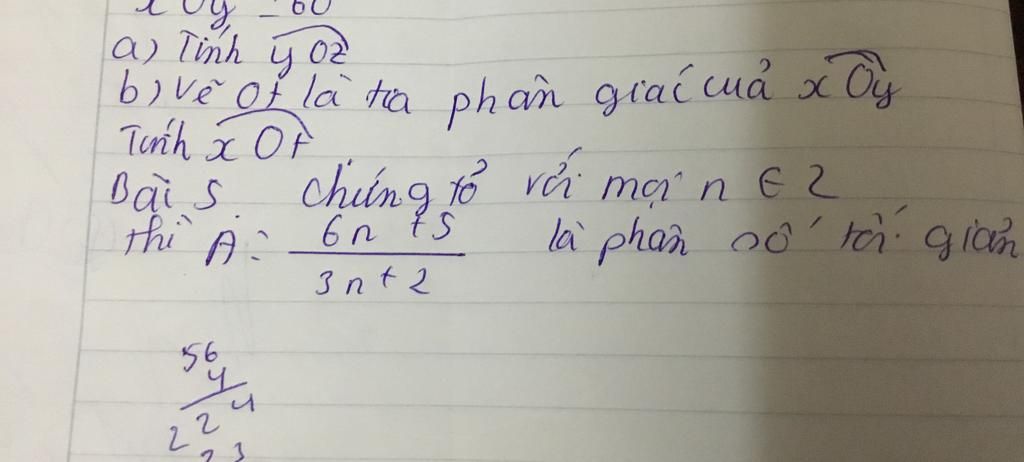 x Oy = 60
a) Tính yOz
b) Vẽ Ot là tia phân giác cuả xOy
Tính xOt
Bài 5. Chứng tỏ với mọi n ∈ Z
thì A = 6n + 5 là phân số tối giản
3n + 2
56
4
224
23